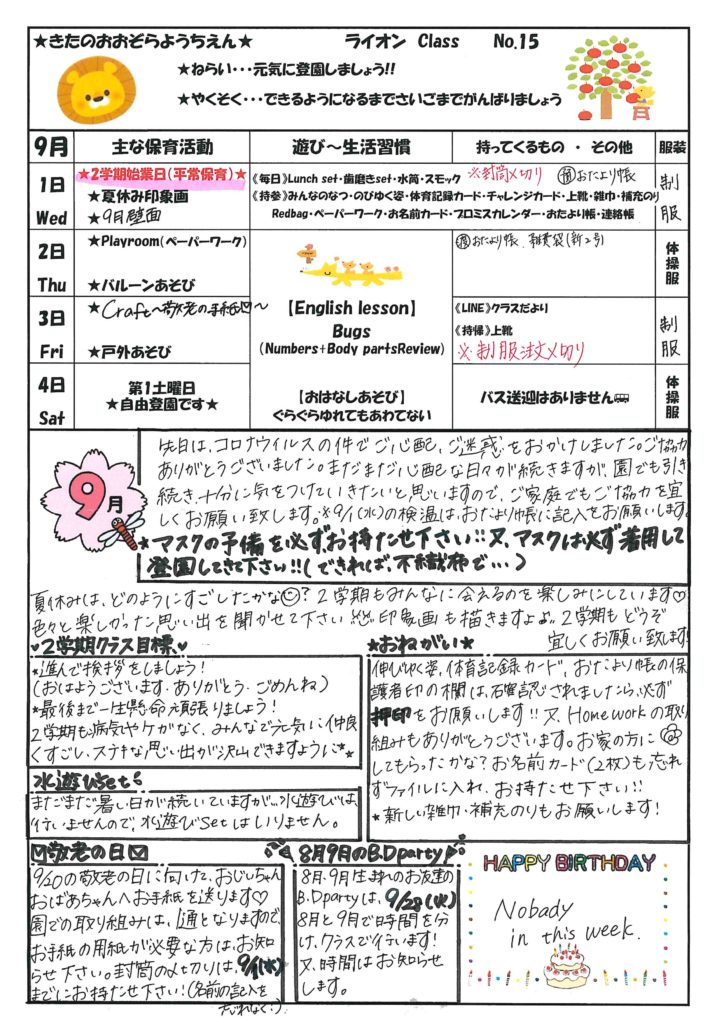 ★きたのおおぞらようちえん★ ライオン Class No.15
★ねらい・・・元気に登園しましょう!!
★やくそく・・・できるようになるまでさいごまでがんばりましょう
9月 主な保育活動 遊び～生活習慣 持ってくるもの ・ その他 服装
1日 Wed
★2学期始業日(平常保育)★
★夏休み印象画
★9月壁面
《毎日》Lunch set・歯磨きset・水筒・スモック ※封筒〆切り おたより帳
《持参》みんなのなつ・のびゆく姿・体育記録カード・チャレンジカード・上靴・雑巾・補充のり
Redbag・ペーパーワーク・お名前カード・プロミスカレンダー・おたより帳・連絡帳
制服
2日 Thu
★Playroom(ペーパーワーク)
★バルーンあそび
おたより帳、雑費袋(新2号)
体操服
3日 Fri
★Craft～敬老の手紙♡～
★戸外あそび
【English lesson】
Bugs
(Numbers+Body partsReview)
《LINE》クラスだより
《持帰》上靴
※制服注文〆切り
制服
4日 Sat
第1土曜日
★自由登園です★
【おはなしあそび】
ぐらぐらゆれてもあわてない
バス送迎はありません
体操服
9月
先日は、コロナウイルスの件でご心配、ご迷惑をおかけしました。ご協力
ありがとうございました。まだまだ心配な日々が続きますが、園でも引き
続き、十分に気をつけていきたいと思いますので、ご家庭でもご協力を宜
しくお願い致します。※9/1(水)の検温は、おたより帳に記入をお願いします。
★マスクの予備を必ずお持たせ下さい!!又、マスクは必ず着用して
登園してきて下さい!!(できれば、不織布で...)
夏休みは、どのようにすごしたかな☺?2学期もみんなに会えるのを楽しみにしています♡
色々と楽しかった思い出を聞かせて下さい 印象画も描きますよ♪♪2学期もどうぞ
宜しくお願い致します!
♥2学期クラス目標♥
★進んで挨拶をしましょう!
(おはようございます、ありがとう、ごめんね)
★最後まで一生懸命頑張りましょう!
2学期も病気やケガがなく、みんなで元気に仲良
くすごし、ステキな思い出が沢山できますように★★
水遊びSet
まだまだ暑い日が続いていますが...水遊びは、
行いませんので、水遊びSetはいりません。
★おねがい★
伸びゆく姿、体育記録カード、おたより帳の保
護者印の欄は、確認されましたら、必ず
押印をお願いします!!又、Homeworkの取り
組みもありがとうございます。お家の方に
してもらったかな?お名前カード(2枚)も忘れ
ずファイルに入れ、お持たせ下さい!!
★新しい雑巾・補充のりもお願いします!
敬老の日
9/20の敬老の日に向けて、おじいちゃん
おばあちゃんへお手紙を送ります♡
園での取り組みは、1通となりますので、
お手紙の用紙が必要な方は、お知
らせ下さい。封筒の〆切りは、9/1(水)
までにお持たせ下さい!(名前の記入を
忘れなく:)
8月9月のB.Dparty
8月、9月生まれのお友達の
B.Dpartyは、9/28(火)
8月と9月で時間を分
け、クラスで行います!
又、時間はお知らせ
します。
HAPPY BIRTHDAY
Nobady
in this week.